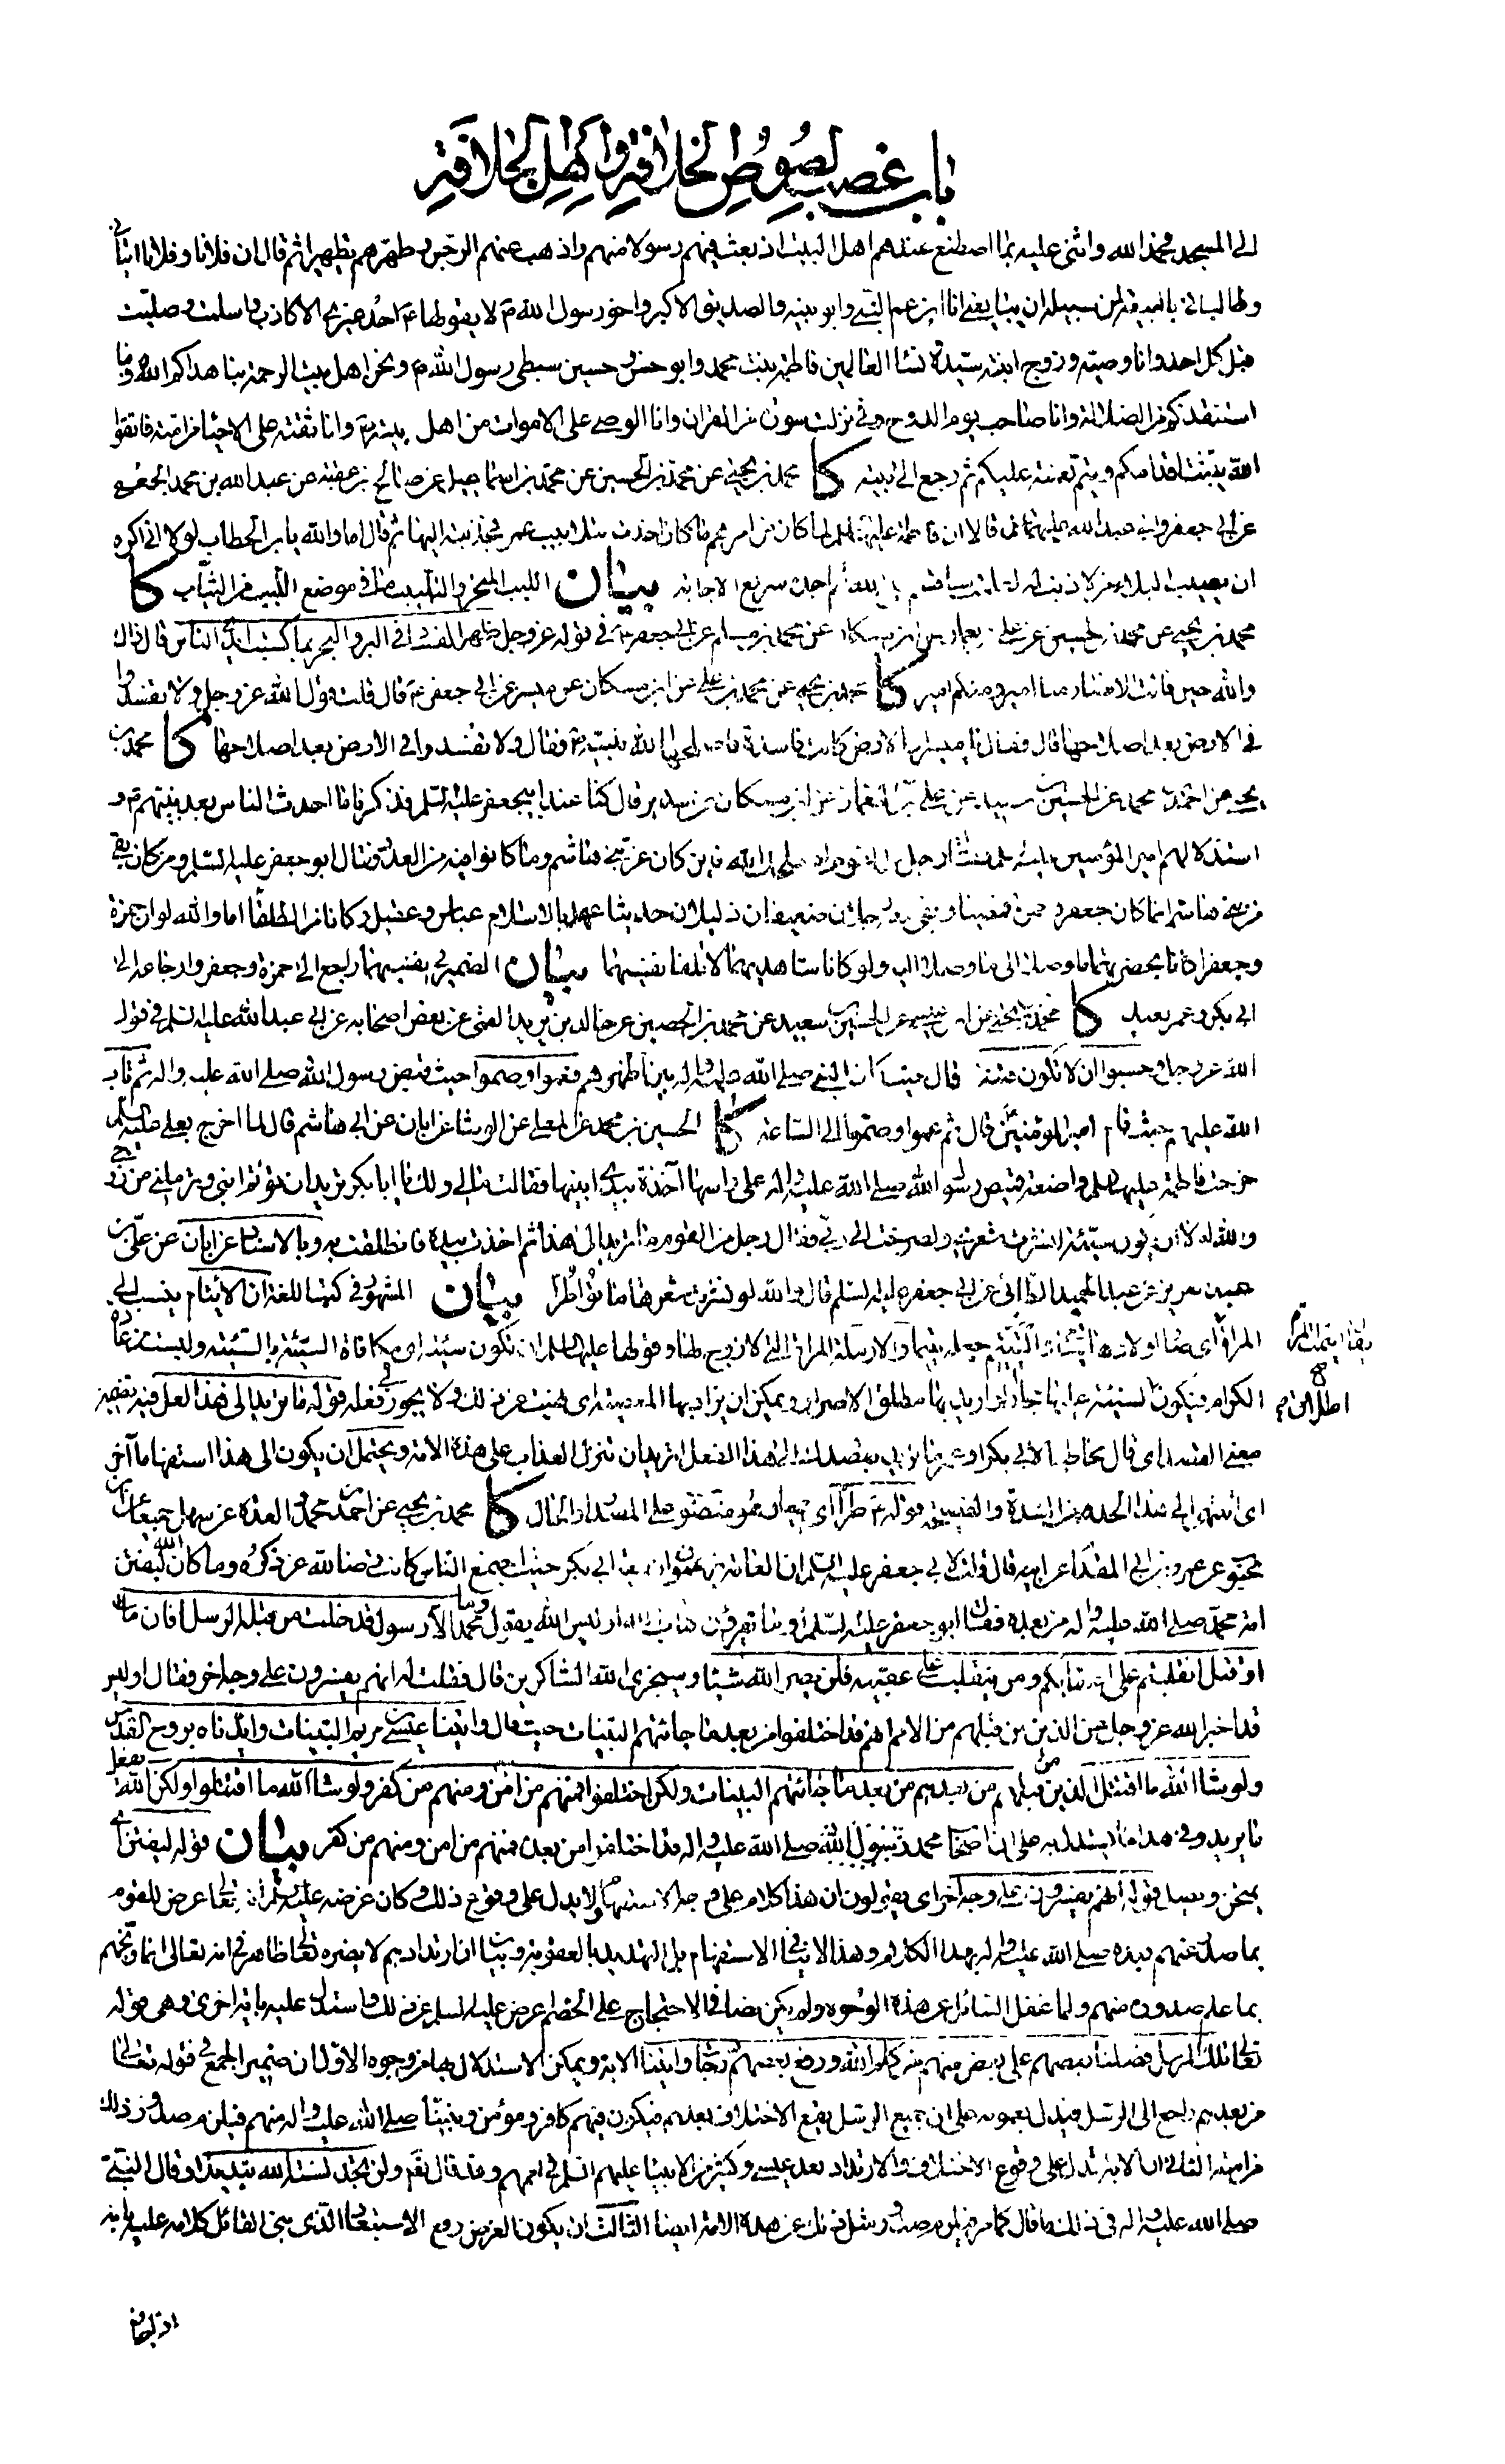 باب غصب لصوص الخلافة واهل الجلافة
الى المسجد فحمد الله واثنى عليه بما اصطنع عندهم اهل البيت اذ بعث فيهم رسولا منهم واذهب عنهم الرجس وطهرهم تطهيرا ثم قال ان فلانا وفلانا اتياني
وطالباني بالبيعة لمن سبيله ان يبايعني انا ابن عم النبي وابو بنيه والصديق الاكبر واخو رسول الله ص لا يقولها احد غيري الا كاذب واسلمت وصليت
قبل كل احد وانا وصيه وزوج ابنته سيدة نساء العالمين فاطمة بنت محمد وابو حسن وحسين سبطى رسول الله ص ونحن اهل بيت الرحمة بنا هداكم الله وبنا
استنقذكم من الضلالة وانا صاحب يوم الدوح وفي نزلت سورة من القران وانا الوصي على الاموات من اهل بيته وانا ثقته على الاحياء من امته فاتقوا
الله يثبت اقدامكم ويتم نعمته عليكم ثم رجع الى بيته كا محمد بن يحيى عن محمد بن الحسين عن محمد بن اسماعيل عن صالح بن عقبة عن عبد الله بن محمد الجعفي
عن ابي جعفر وابي عبد الله عليهما السلم قالا ان فاطمة عليها السلم لما كان من امرهم ما كان اخذت بتلابيب عمر فجذبته اليها ثم قال اما والله يا بن الخطاب لولا اني اكره
ان يصيب البلاء من لا ذنب له لعلمت سأقسم على الله ثم اجده سريع الاجابة بيان اللبب المنحر والتلبيب ما في موضع اللبب من الثياب كا
محمد بن يحيى عن محمد بن الحسين عن علي بن النعمان عن ابن مسكان عن محمد بن مسلم عن ابي جعفر في قوله عز وجل ظهر الفساد في البر والبحر بما كسبت ايدي الناس قال ذاك
والله حين قالت الانصار منا امير ومنكم امير كا محمد بن يحيى عن محمد بن علي عن ابن مسكان عن ميسر عن ابي جعفر ع قال قلت قول الله عز وجل ولا تفسدوا
في الارض بعد اصلاحها قال فقال يا ميسر ان الارض كانت فاسدة فاصلحها الله بنبيه فقال ولا تفسدوا في الارض بعد اصلاحها كا محمد بن
يحيى عن احمد بن محمد عن الحسين بن سعيد عن علي بن النعمان عن ابن مسكان عن سدير قال كنا عند ابي جعفر عليه السلم فذكرنا ما احدث الناس بعد نبيهم ص و
استذلالهم امير المؤمنين عليه السلم فقال رجل من القوم اصلحك الله فاين كان عز بني هاشم وما كانوا فيه من العدد فقال ابو جعفر عليه السلم ومن كان بقي
من بني هاشم انما كان جعفر وحمزة فمضيا وبقى معه رجلان ضعيفان ذليلان حديثا عهد بالاسلام عباس وعقيل وكانا من الطلقاء اما والله لو ان حمزة
وجعفرا كانا بحضرتهما ما وصلا الى ما وصلا اليه ولو كانا شاهديهما لاتلفا نفسيهما بيان الضمير في نفسيهما راجع الى حمزة وجعفر وارجاعه الى
ابي بكر وعمر بعيد كا محمد بن يحيى عن احمد بن عيسى عن الحسين بن سعيد عن محمد بن الحصين عن خالد بن يزيد القمي عن بعض اصحابه عن ابي عبد الله عليه السلم في قوله
الله عز وجل وحسبوا ان لا تكون فتنة قال حيث كان النبي صلى الله عليه واله بين اظهرهم فعموا وصموا حيث قبض رسول الله صلى الله عليه واله ثم تاب
الله عليهم حيث قام امير المؤمنين قال ثم عموا وصموا الى الساعة كا الحسين بن محمد عن المعلى عن الوشا عن ابان عن ابي هاشم قال لما اخرج بعلي عليه السلم
خرجت فاطمة عليها السلم واضعة قميص رسول الله صلى الله عليه واله على راسها آخذة بيدي ابنيها فقالت مالي ولك يا ابا بكر تريد ان تؤتم ابني وترملني من زوجي
والله لولا ان تكون سيئة لنشرت شعري ولصرخت الى ربي فقال رجل من القوم ما تريد الى هذا ثم اخذت بيده فانطلقت به وبالاسناد عن ابان عن علي بن
عبد العزيز عن عبد الحميد الطائي عن ابي جعفر عليه السلم قال والله لو نشرت شعرها ماتوا طرا بيان المشهور في كتب اللغة ان الايتام ينسب الى
المراة اي صار اولادها يتامى والتيتيم جعله يتيما والارملة المراة التي لا زوج لها وقولها عليها السلم ان تكون سيئة اي مكافاة السيئة بالسيئة وليست من عادة
الكرام فيكون السيئة عليها مجازا او اريد بها مطلق الاضرار ويمكن ان يراد بها المعصية اي نهيت عن ذلك ولا يجوز لي فعله قوله ما تريد الى هذا لعل فيه تضمين
معنى القصد اي قال مخاطبا لابي بكر او عمر ما تريد بقصدك الى هذا الفعل اتريد ان تنزل العذاب على هذه الامة ويحتمل ان يكون الى هذا استفهاما آخر
اي اتنتهي الى هذا الحد من الشدة والفضيحة قوله ع طرا اي جميعا وهو منصوب على المصدر او الحال كا محمد بن يحيى عن احمد بن محمد والعدة عن سهل جميعا عن ابن
محبوب عن عمرو بن ابي المقدام عن ابيه قال قلت لابي جعفر عليه السلم ان العامة يزعمون ان بيعة ابي بكر حيث اجتمع الناس كانت رضا لله عز ذكره وما كان الله ليفتن
امة محمد صلى الله عليه واله من بعده فقال ابو جعفر عليه السلم او ما يقرؤن كتاب الله او ليس الله يقول وما محمد الا رسول قد خلت من قبله الرسل افان مات
او قتل انقلبتم على اعقابكم ومن ينقلب على عقبيه فلن يضر الله شيئا وسيجزي الله الشاكرين قال فقلت له انهم يفسرون على وجه اخر فقال او ليس
قد اخبر الله عز وجل عن الذين من قبلهم من الامم انهم قد اختلفوا من بعد ما جائتهم البينات حيث قال واتينا عيسى بن مريم البينات وايدناه بروح القدس
ولو شاء الله ما اقتتل الذين من قبلهم من بعدهم من بعد ما جائتهم البينات ولكن اختلفوا فمنهم من امن ومنهم من كفر ولو شاء الله ما اقتتلوا ولكن الله يفعل
ما يريد وفي هذا ما يستدل به على ان اصحاب محمد رسول الله صلى الله عليه واله قد اختلفوا من بعده فمنهم من امن ومنهم من كفر بيان قوله ليفتن اي
يمتحن ويضل قوله انهم يفسرون على وجه اخر اي يقولون ان هذا كلام على وجه الاستفهام ولا يدل على وقوع ذلك وكان غرضه عليه السلم ان تعالى عرض للقوم
بما صدر عنهم بعده صلى الله عليه واله بهذا الكلام وهذا لا ينافي الاستفهام بل التهديد بالعقوبة وبيان ان ارتدادهم لا يضره تعالى ظاهر في انه تعالى انما وبخهم
بما علم صدوره منهم ولما غفل السائل عن هذه الوجوه ولم يكن نصا في الاحتجاج على الخصم اعرض عليه السلم عن ذلك واستدل عليه باية اخرى وهي قوله
تعالى تلك الرسل فضلنا بعضهم على بعض منهم من كلم الله ورفع بعضهم درجات واتينا الاية ويمكن الاستدلال بها من وجوه الاول ان ضمير الجمع في قوله تعالى
من بعدهم راجع الى الرسل فيدل بعمومه على ان جميع الرسل يقع الاختلاف بعدهم فيكون فيهم كافر ومؤمن ونبينا صلى الله عليه واله منهم فيلزم صدور ذلك
من امته الثاني ان الاية تدل على وقوع الاختلاف والارتداد بعد عيسى وكثير من الانبياء عليهم السلم في اممهم وقد قال تعالى ولن تجد لسنة الله تبديلا وقال النبي
صلى الله عليه واله في ذلك ما قال كما مر فيلزم صدور مثل ذلك عن هذه الامة ايضا الثالث ان يكون الغرض رفع الاستبعاد الذي بنى القائل كلامه عليه بانه